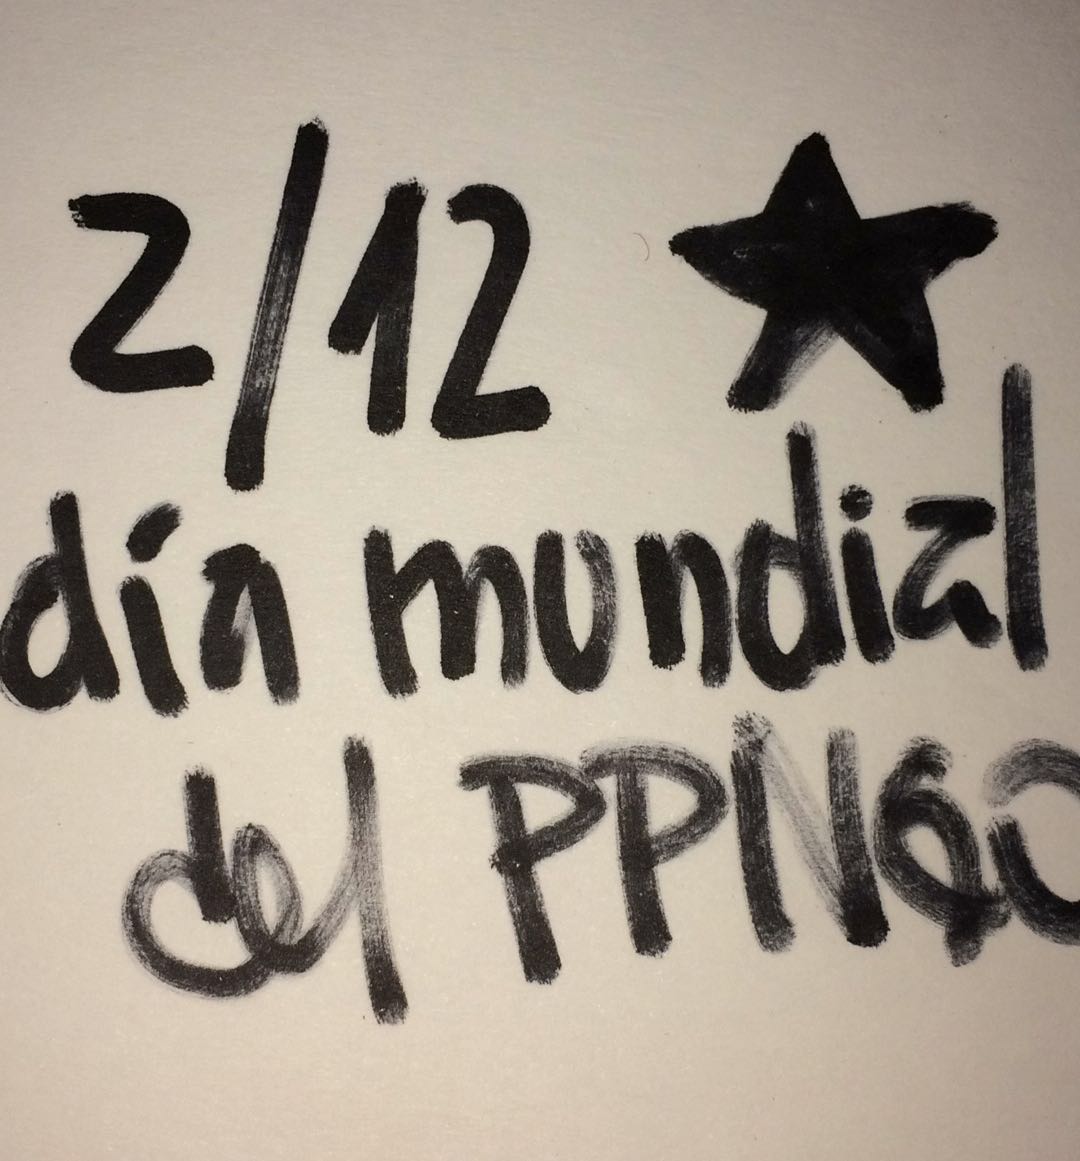 2/12 ★
día mundial
del